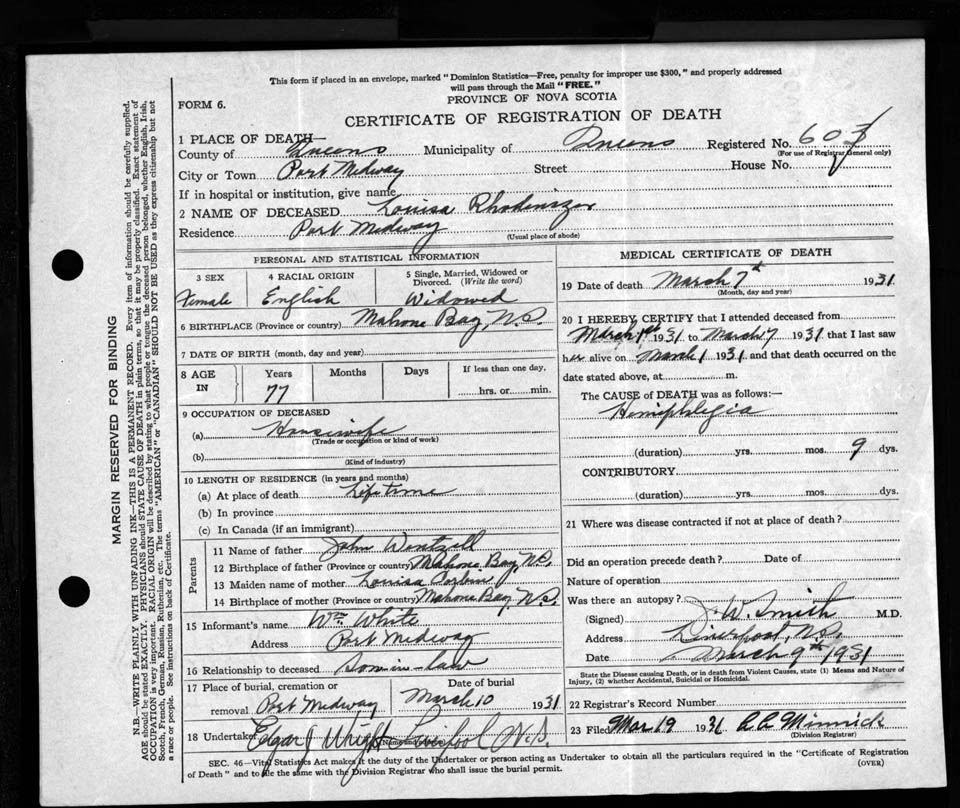 This form if placed in an envelope, marked "Dominion Statistics—Free, penalty for improper use $300," and properly addressed
will pass through the Mail "FREE."
PROVINCE OF NOVA SCOTIA
FORM 6.
CERTIFICATE OF REGISTRATION OF DEATH
1 PLACE OF DEATH—
County of Queens Municipality of Queens Registered No.
(For use of Registrar General only)
City or Town Port Medway Street House No.
If in hospital or institution, give name
2 NAME OF DECEASED Louisa Rhodenizer
Residence Port Medway
(Usual place of abode)
PERSONAL AND STATISTICAL INFORMATION
3 SEX
Female
4 RACIAL ORIGIN
English
5 Single, Married, Widowed or
Divorced. (Write the word)
Widowed
6 BIRTHPLACE (Province or country) Mahone Bay, N.S.
7 DATE OF BIRTH (month, day and year)
8 AGE
IN
Years
77
Months
Days
If less than one day,
hrs. or min.
9 OCCUPATION OF DECEASED
(a) Housewife
(Trade or occupation or kind of work)
(b)
(Kind of industry)
10 LENGTH OF RESIDENCE (in years and months)
(a) At place of death Life time
(b) In province
(c) In Canada (if an immigrant)
Parents
11 Name of father John Wentzell
12 Birthplace of father (Province or country) Mahone Bay, N.S.
13 Maiden name of mother Louisa
14 Birthplace of mother (Province or country) Mahone Bay, N.S.
15 Informant's name Wm. White
Address Port Medway
16 Relationship to deceased Son-in-law
17 Place of burial, cremation or
removal Port Medway
Date of burial
March 10 1931
18 Undertaker Edgar J Wright Liverpool N.S.
(Name and address)
MEDICAL CERTIFICATE OF DEATH
19 Date of death March 7th 1931
(Month, day and year)
20 I HEREBY CERTIFY that I attended deceased from
March 1st 1931 to March 7 1931 that I last saw
her alive on March 1 1931 and that death occurred on the
date stated above, at m.
The CAUSE OF DEATH was as follows:—
Hemiphlegia
(duration) yrs. mos. 9 dys.
CONTRIBUTORY
(duration) yrs. mos. dys.
21 Where was disease contracted if not at place of death?
Did an operation precede death? Date of
Nature of operation
Was there an autopsy?
(Signed) J. W. Smith M.D.
Address Liverpool, N.S.
Date March 9th 1931
State the Disease causing Death, or in death from Violent Causes, state (1) Means and Nature of
Injury, (2) whether Accidental, Suicidal or Homicidal.
22 Registrar's Record Number
23 Filed Mar 19 1931 Minnick
(Division Registrar)
SEC. 46—Vital Statistics Act makes it the duty of the Undertaker or person acting as Undertaker to obtain all the particulars required in the "Certificate of Registration
of Death" and to file the same with the Division Registrar who shall issue the burial permit.
(OVER)
MARGIN RESERVED FOR BINDING
N.B.—WRITE PLAINLY WITH UNFADING INK—THIS IS A PERMANENT RECORD. Every item of information should be carefully supplied.
AGE should be stated EXACTLY. PHYSICIANS should STATE CAUSE OF DEATH in plain terms, so that it may be properly classified. Exact statement of
OCCUPATION is very important. RACIAL ORIGIN will be described by stating to what people or tongue the deceased person belonged, whether English, Irish,
Scotch, French, German, Russian, Ruthenian, etc. The terms "AMERICAN" or "CANADIAN" SHOULD NOT BE USED as they express citizenship but not
a race or people. See instructions on back of Certificate.